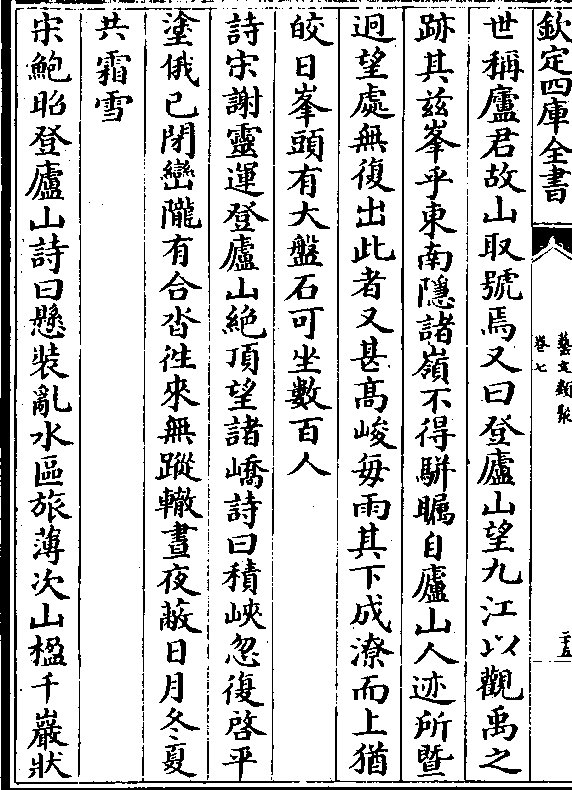 欽定四庫全書
藝文類聚
卷七
二五
世稱廬君故山取號焉又曰登廬山望九江以觀禹之
跡其兹峯乎東南隱諸嶺不得駢矚自廬山人迹所暨
迥望處無復出此者又甚髙峻每雨其下成潦而上猶
皎日峯頭有大盤石可坐數百人
詩宋謝靈運登廬山絶頂望諸嶠詩曰積峽忽復啓平
塗俄已閉巒隴有合沓徃來無蹤轍晝夜蔽日月冬夏
共霜雪
宋鮑昭登廬山詩曰懸裝亂水區旅薄次山楹千巖狀